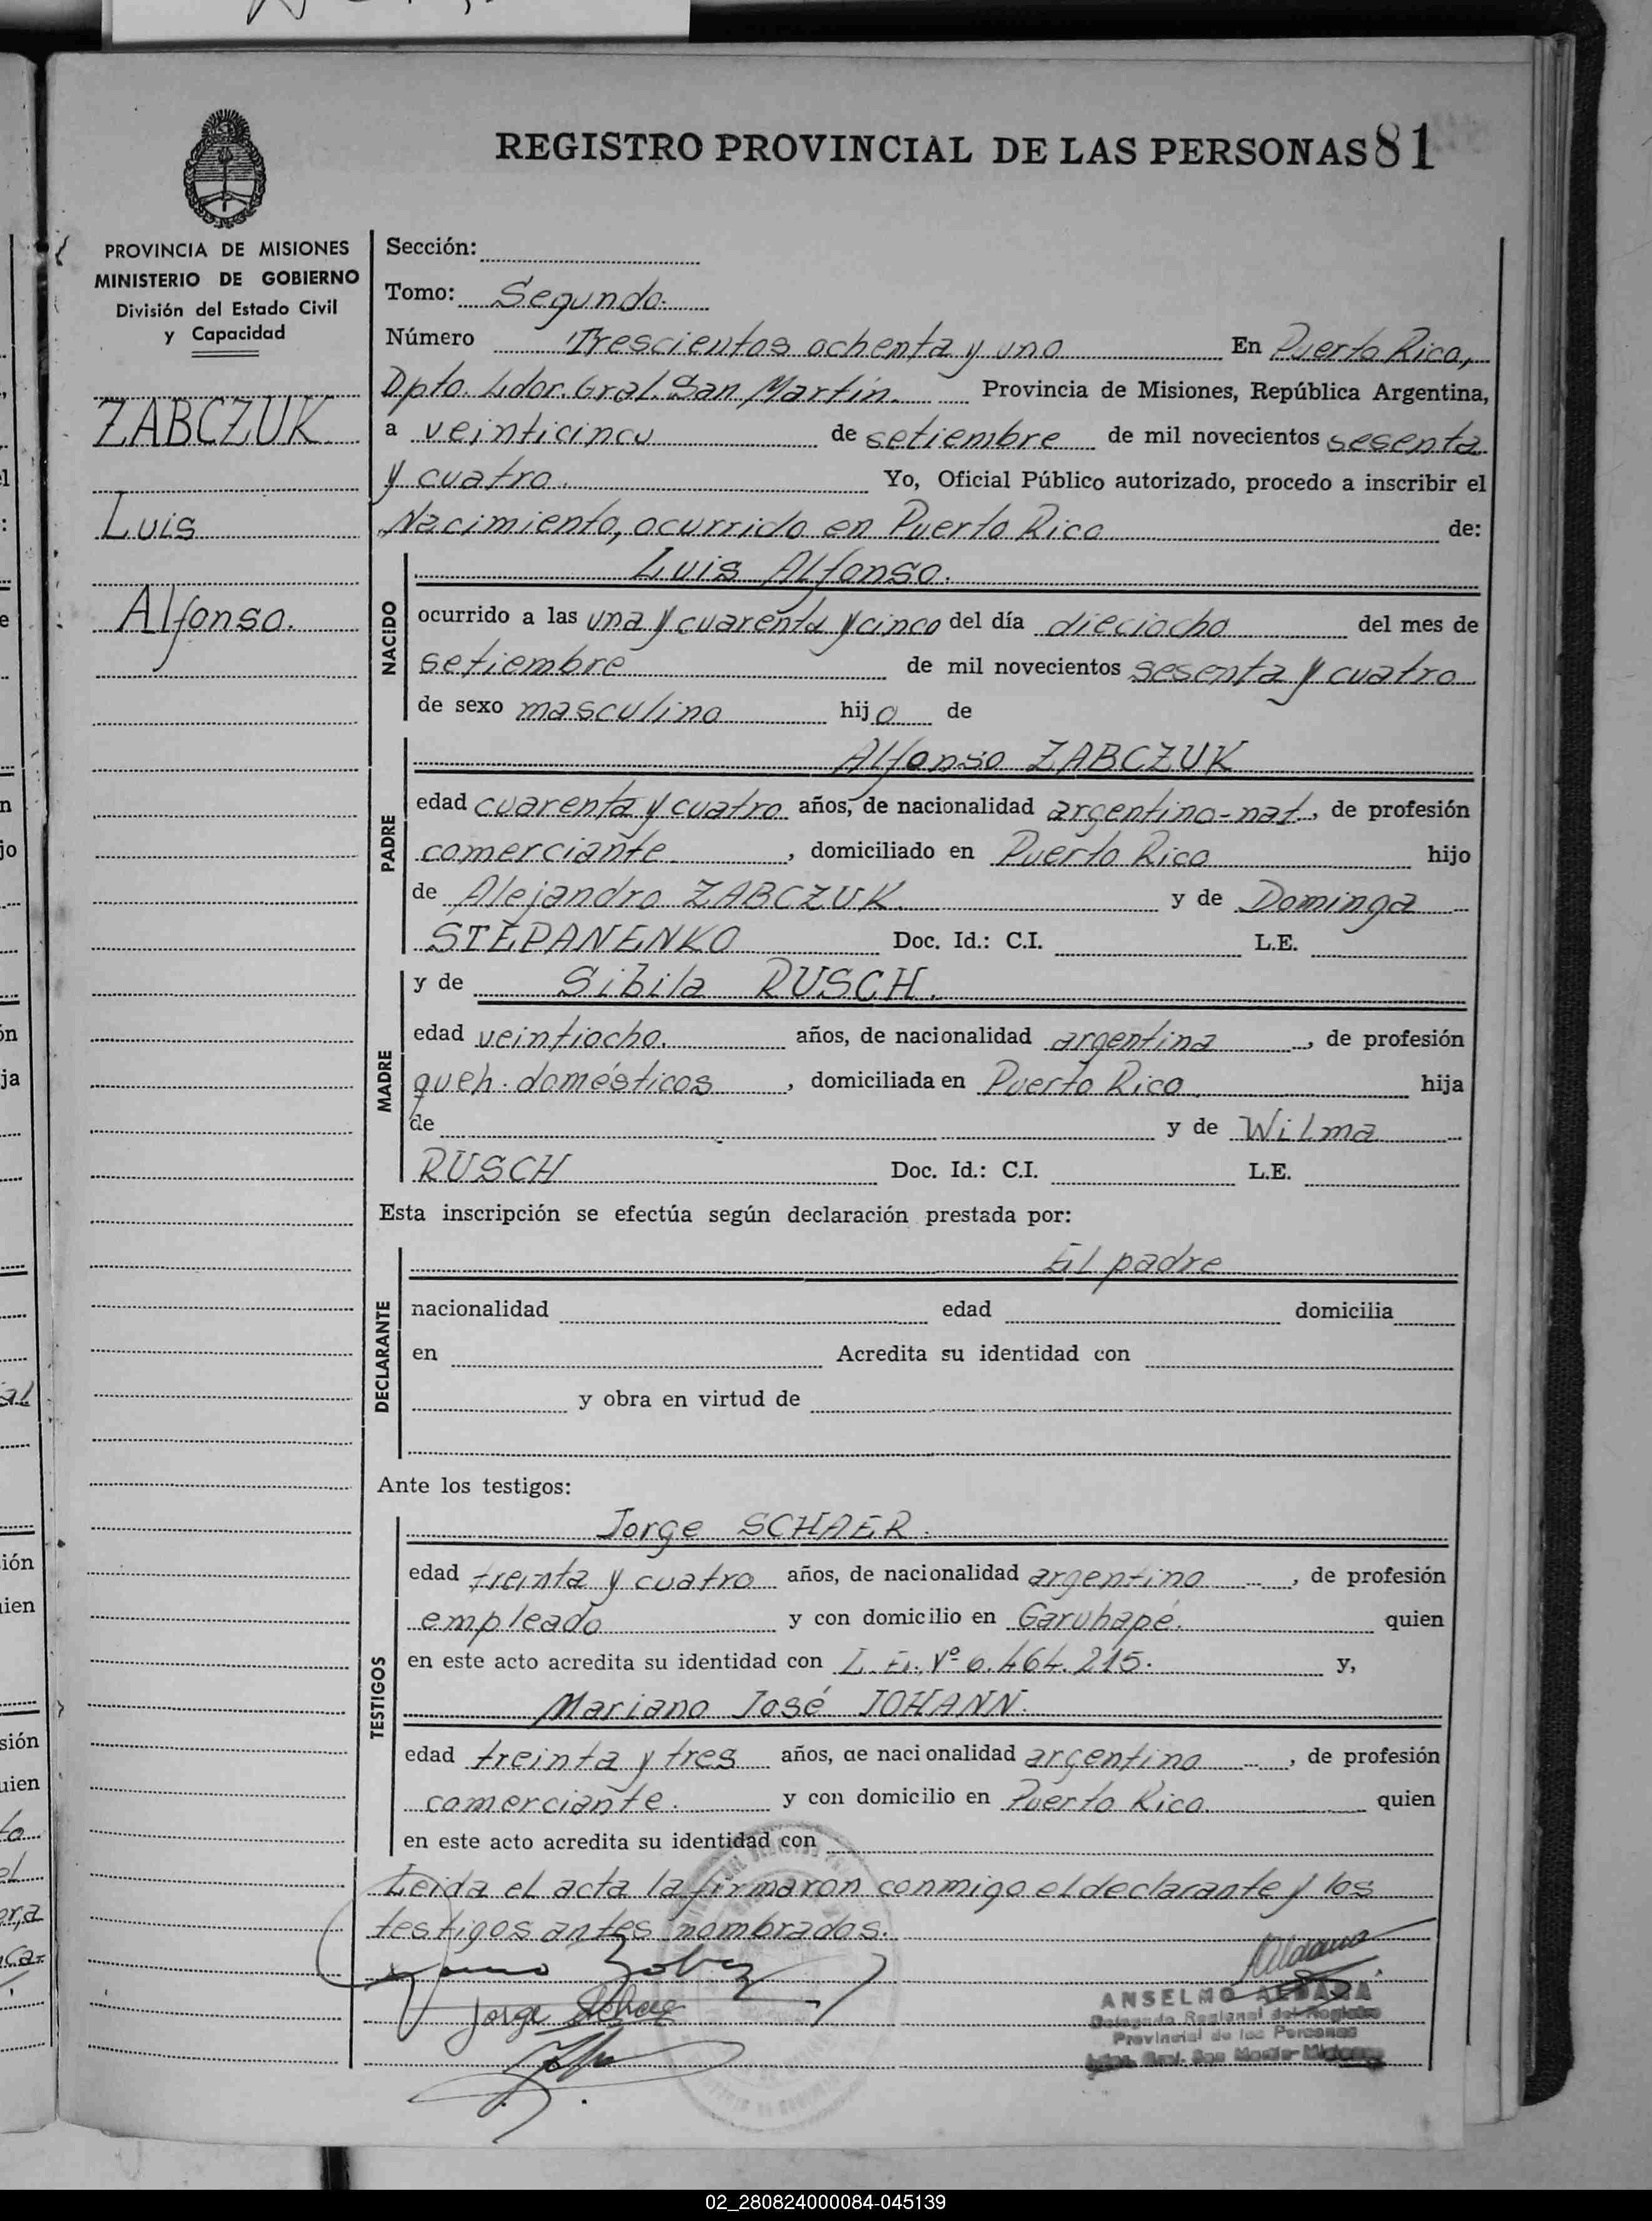 REGISTRO PROVINCIAL DE LAS PERSONAS 81
PROVINCIA DE MISIONES
MINISTERIO DE GOBIERNO
División del Estado Civil
y Capacidad
ZABCZUK
Luis
Alfonso.
Sección:
Tomo: Segundo.
Número Trescientos ochenta y uno En Puerto Rico,
Dpto. Ldor. Gral. San Martín. Provincia de Misiones, República Argentina,
a veinticinco de setiembre de mil novecientos sesenta
y cuatro. Yo, Oficial Público autorizado, procedo a inscribir el
Nacimiento, ocurrido en Puerto Rico de:
NACIDO
Luis Alfonso.
ocurrido a las una y cuarenta y cinco del día dieciocho del mes de
setiembre de mil novecientos sesenta y cuatro
de sexo masculino hijo de
PADRE
Alfonso ZABCZUK
edad cuarenta y cuatro años, de nacionalidad argentino-nat., de profesión
comerciante. , domiciliado en Puerto Rico hijo
de Alejandro ZABCZUK. y de Dominga
STEPANENKO Doc. Id.: C.I. L.E.
MADRE
y de Sibila RUSCH.
edad veintiocho. años, de nacionalidad argentina , de profesión
queh. domésticos , domiciliada en Puerto Rico hija
de y de Wilma
RUSCH Doc. Id.: C.I. L.E.
Esta inscripción se efectúa según declaración prestada por:
DECLARANTE
El padre
nacionalidad edad domicilia
en Acredita su identidad con
y obra en virtud de
Ante los testigos:
TESTIGOS
Jorge SCHAER.
edad treinta y cuatro años, de nacionalidad argentino , de profesión
empleado y con domicilio en Garuhapé. quien
en este acto acredita su identidad con L.E. Nº 6.464.215. y,
Mariano José JOHANN.
edad treinta y tres años, de nacionalidad argentino , de profesión
comerciante. y con domicilio en Puerto Rico. quien
en este acto acredita su identidad con
Leida el acta la firmaron conmigo el declarante y los
testigos antes nombrados.
Jorge Schaer
Aldana
ANSELMO ALDANA
Delegado Regional del Registro
Provincial de las Personas
02_280824000084-045139